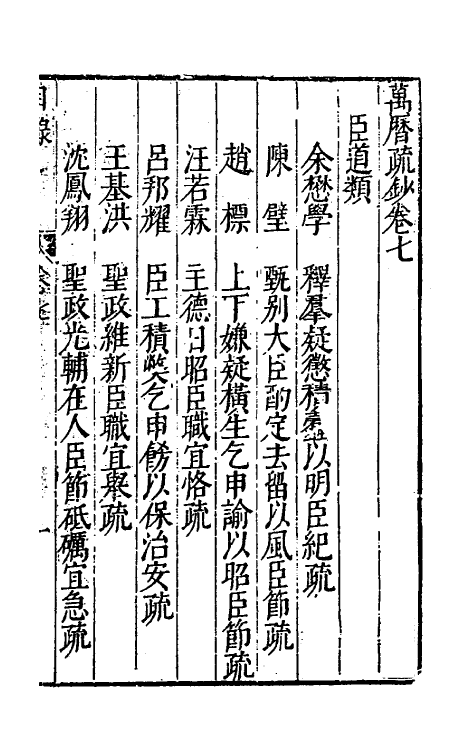 萬曆疏鈔卷七
臣道類
余懋學 釋羣疑懲積弊以明臣紀疏
陳壁 甄别大臣酌定去留以風臣節疏
趙標 上下嫌疑橫生乞申諭以昭臣節疏
汪若霖 主德日昭臣職宜恪疏
呂邦耀 臣工積弊乞申飭以保治安疏
王基洪 聖政維新臣職宜舉疏
沈鳳翔 聖政光輔在人臣節砥礪宜急疏
目錄 一